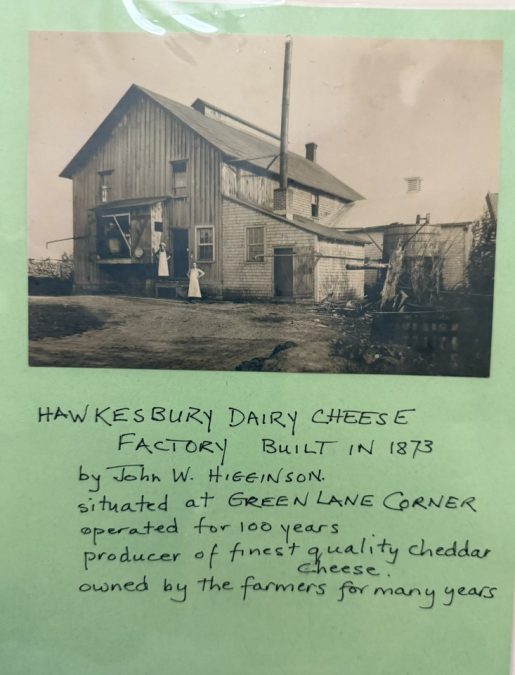 HAWKESBURY DAIRY CHEESE
FACTORY BUILT IN 1873
by John W. HIGGINSON.
situated at GREEN LANE CORNER
operated for 100 years
producer of finest quality cheddar
cheese.
owned by the farmers for many years